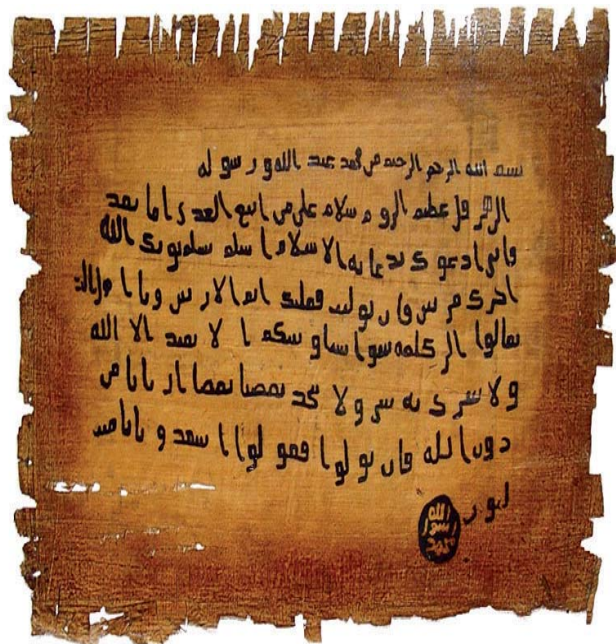 بسم الله الرحمن الرحيم من محمد عبد الله ورسوله
الى هرقل عظيم الروم سلام على من اتبع الهدى اما بعد
فاني ادعوك بدعاية الاسلام اسلم تسلم يوتك الله
اجرك مرتين فان توليت فعليك اثم الاريسين ويا اهل
تعالوا الى كلمة سوا بيننا وبينكم الا نعبد الا الله
ولا نشرك به شيا ولا يتخذ بعضنا بعضا اربابا من
دون الله فان تولوا فقولوا اشهدوا بانا مسـ
لمون
الله
رسول
محمد